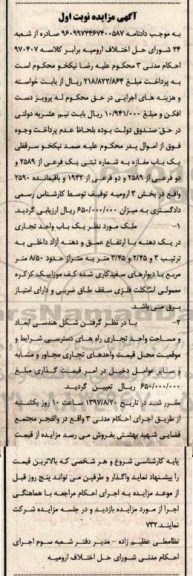 آگهی مزایده نوبت اول
به موجب دادنامه ۹۶۰۹۹۷۴۴۶۷۴۰۰۵۸۷ صادره از شعبه
۲۴ شورای حل اختلاف ارومیه برابر کلاسه ۹۷۰۴۰۷
احکام مدنی ۳ محکوم علیه رضا نیکخو محکوم است
به پرداخت مبلغ ۲۱۸/۸۲۲/۸۶۴ ریال از بابت خواسته
و هزینه های اجرایی در حق محکوم له پرویز دست
افکن و مبلغ ۱۰/۹۴۱/۰۰۰ ریال بابت نیم عشریه دولتی
در حق صندوق دولت بوده بلحاظ عدم پرداخت وجوه
فوق از اموال پدر محکوم علیه صمد نیکخو سرقفلی
یک باب مغازه به شماره ثبتی یک فرعی از ۲۵۸۹ و
دو فرعی از ۲۵۸۹ و دو فرعی از ۱۹۴۲ و باقیمانده ۲۵۹۰
واقع در بخش ۳ ارومیه توقیف توسط کارشناس رسمی
دادگستری به میزان ۶۵۰/۰۰۰/۰۰۰ ریال ارزیابی گردید.
۱- ملک مورد نظر یک باب واحد تجاری
در یک دهنه با ارتفاع عمق و دهنه آزاد داخلی به
ترتیب ۳ و ۲/۴۵ و ۲/۴۵ متر به متراژ حدود ۸/۵۰ متر
مربع با دیوارهای سفیدکاری شده کف موزاییک کرکره
معمولی اسکلت فلزی سقف طاق ضربی و دارای امتیاز
برق می باشد
۲- با در نظر گرفتن شکل هندسی ابعاد
و مساحت واحد تجاری راه های دسترسی شرایط و
موقعیت محل قیمت واحدهای تجاری مجاور و مشابه
و سایر عوامل دخیل در امر قیمت گذاری مبلغ
۶۵۰/۰۰۰/۰۰۰ ریال تعیین گردید.
مقرر شده از تاریخ ۱۳۹۷/۸/۲۰ ساعت ۱۰ روز یکشنبه
از طریق اجرای احکام مدنی ۳ واقع در والفجر مجتمع
قضایی شهید بهشتی بفروش می رسد مزایده از قیمت
پایه کارشناسی شروع و هر شخصی که بالاترین قیمت
را پیشنهاد نماید واگذار و طرفین می توانند پنج روز قبل
از موعد مزایده به اجرای احکام مراجعه با هماهنگی
اجرا از مورد مزایده بازدید و در جلسه مزایده شرکت
نمایند.۷۳۲
نظامعلی عظیم زاده - مدیر دفتر شعبه سوم اجرای
احکام مدنی شورای حل اختلاف ارومیه